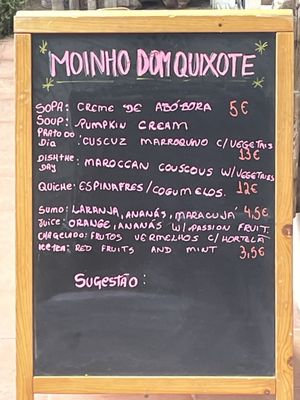 MOINHO DOM QUIXOTE
SOPA: CREME DE ABÓBORA 5€
SOUP: PUMPKIN CREAM
PRATO DO DIA: CUSCUZ MARROQUINO C/VEGETAIS
13€
DISH THE DAY: MAROCCAN COUSCOUS W/VEGETABLES
QUICHE: ESPINAFRES/COGUMELOS. 12€
SUMO: LARANJA, ANANÁS, MARACUJÁ 4,5€
JUICE: ORANGE, ANANÁS W/PASSION FRUIT.
CHÁ GELADO: FRUTOS VERMELHOS C/HORTELÃ
ICE TEA: RED FRUITS AND MINT 3,5€
SUGESTÃO: